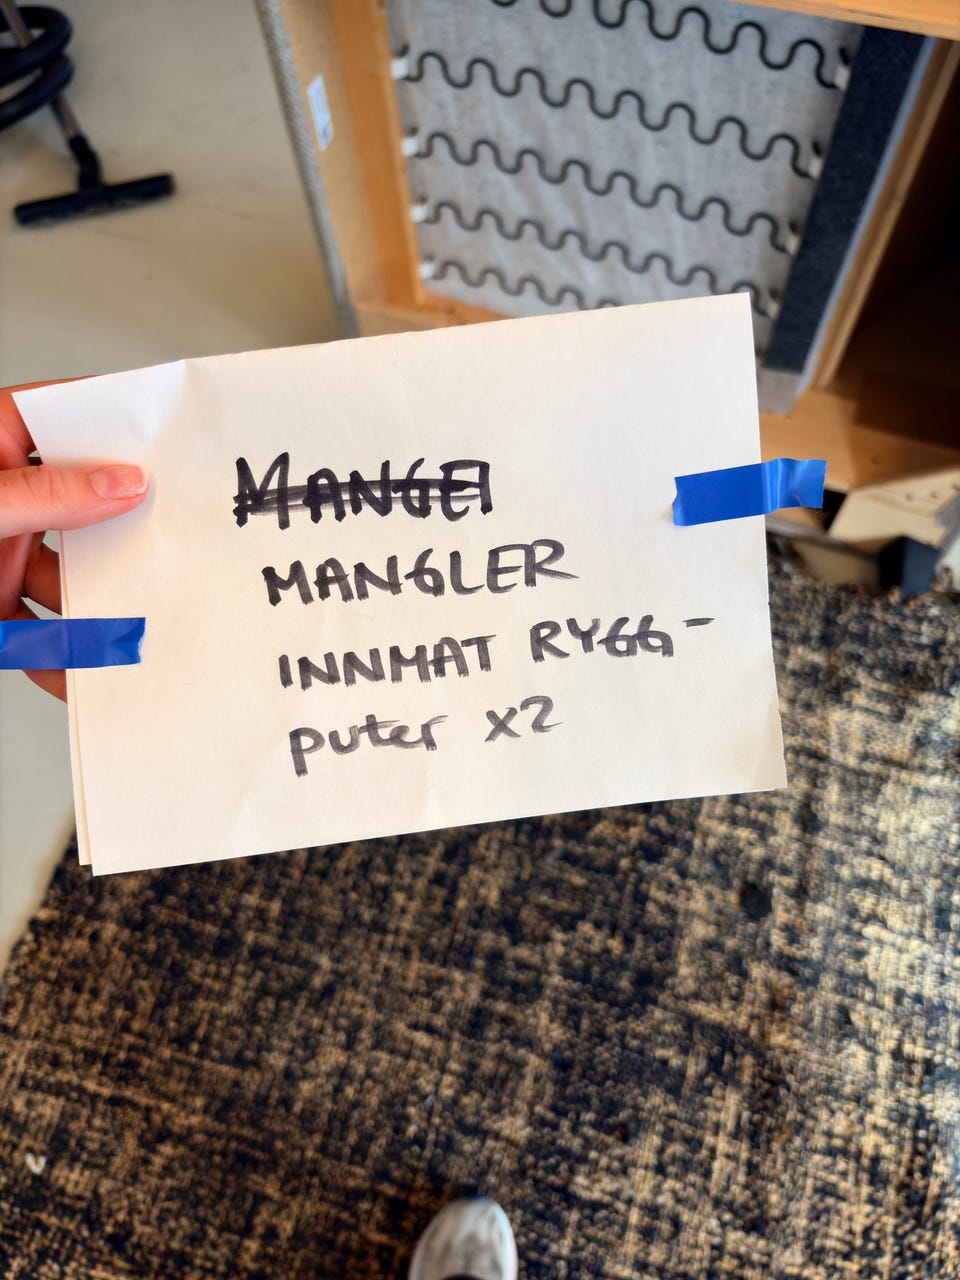 MANGEl
MANGLER
INNMAT RYGG-
puter x2